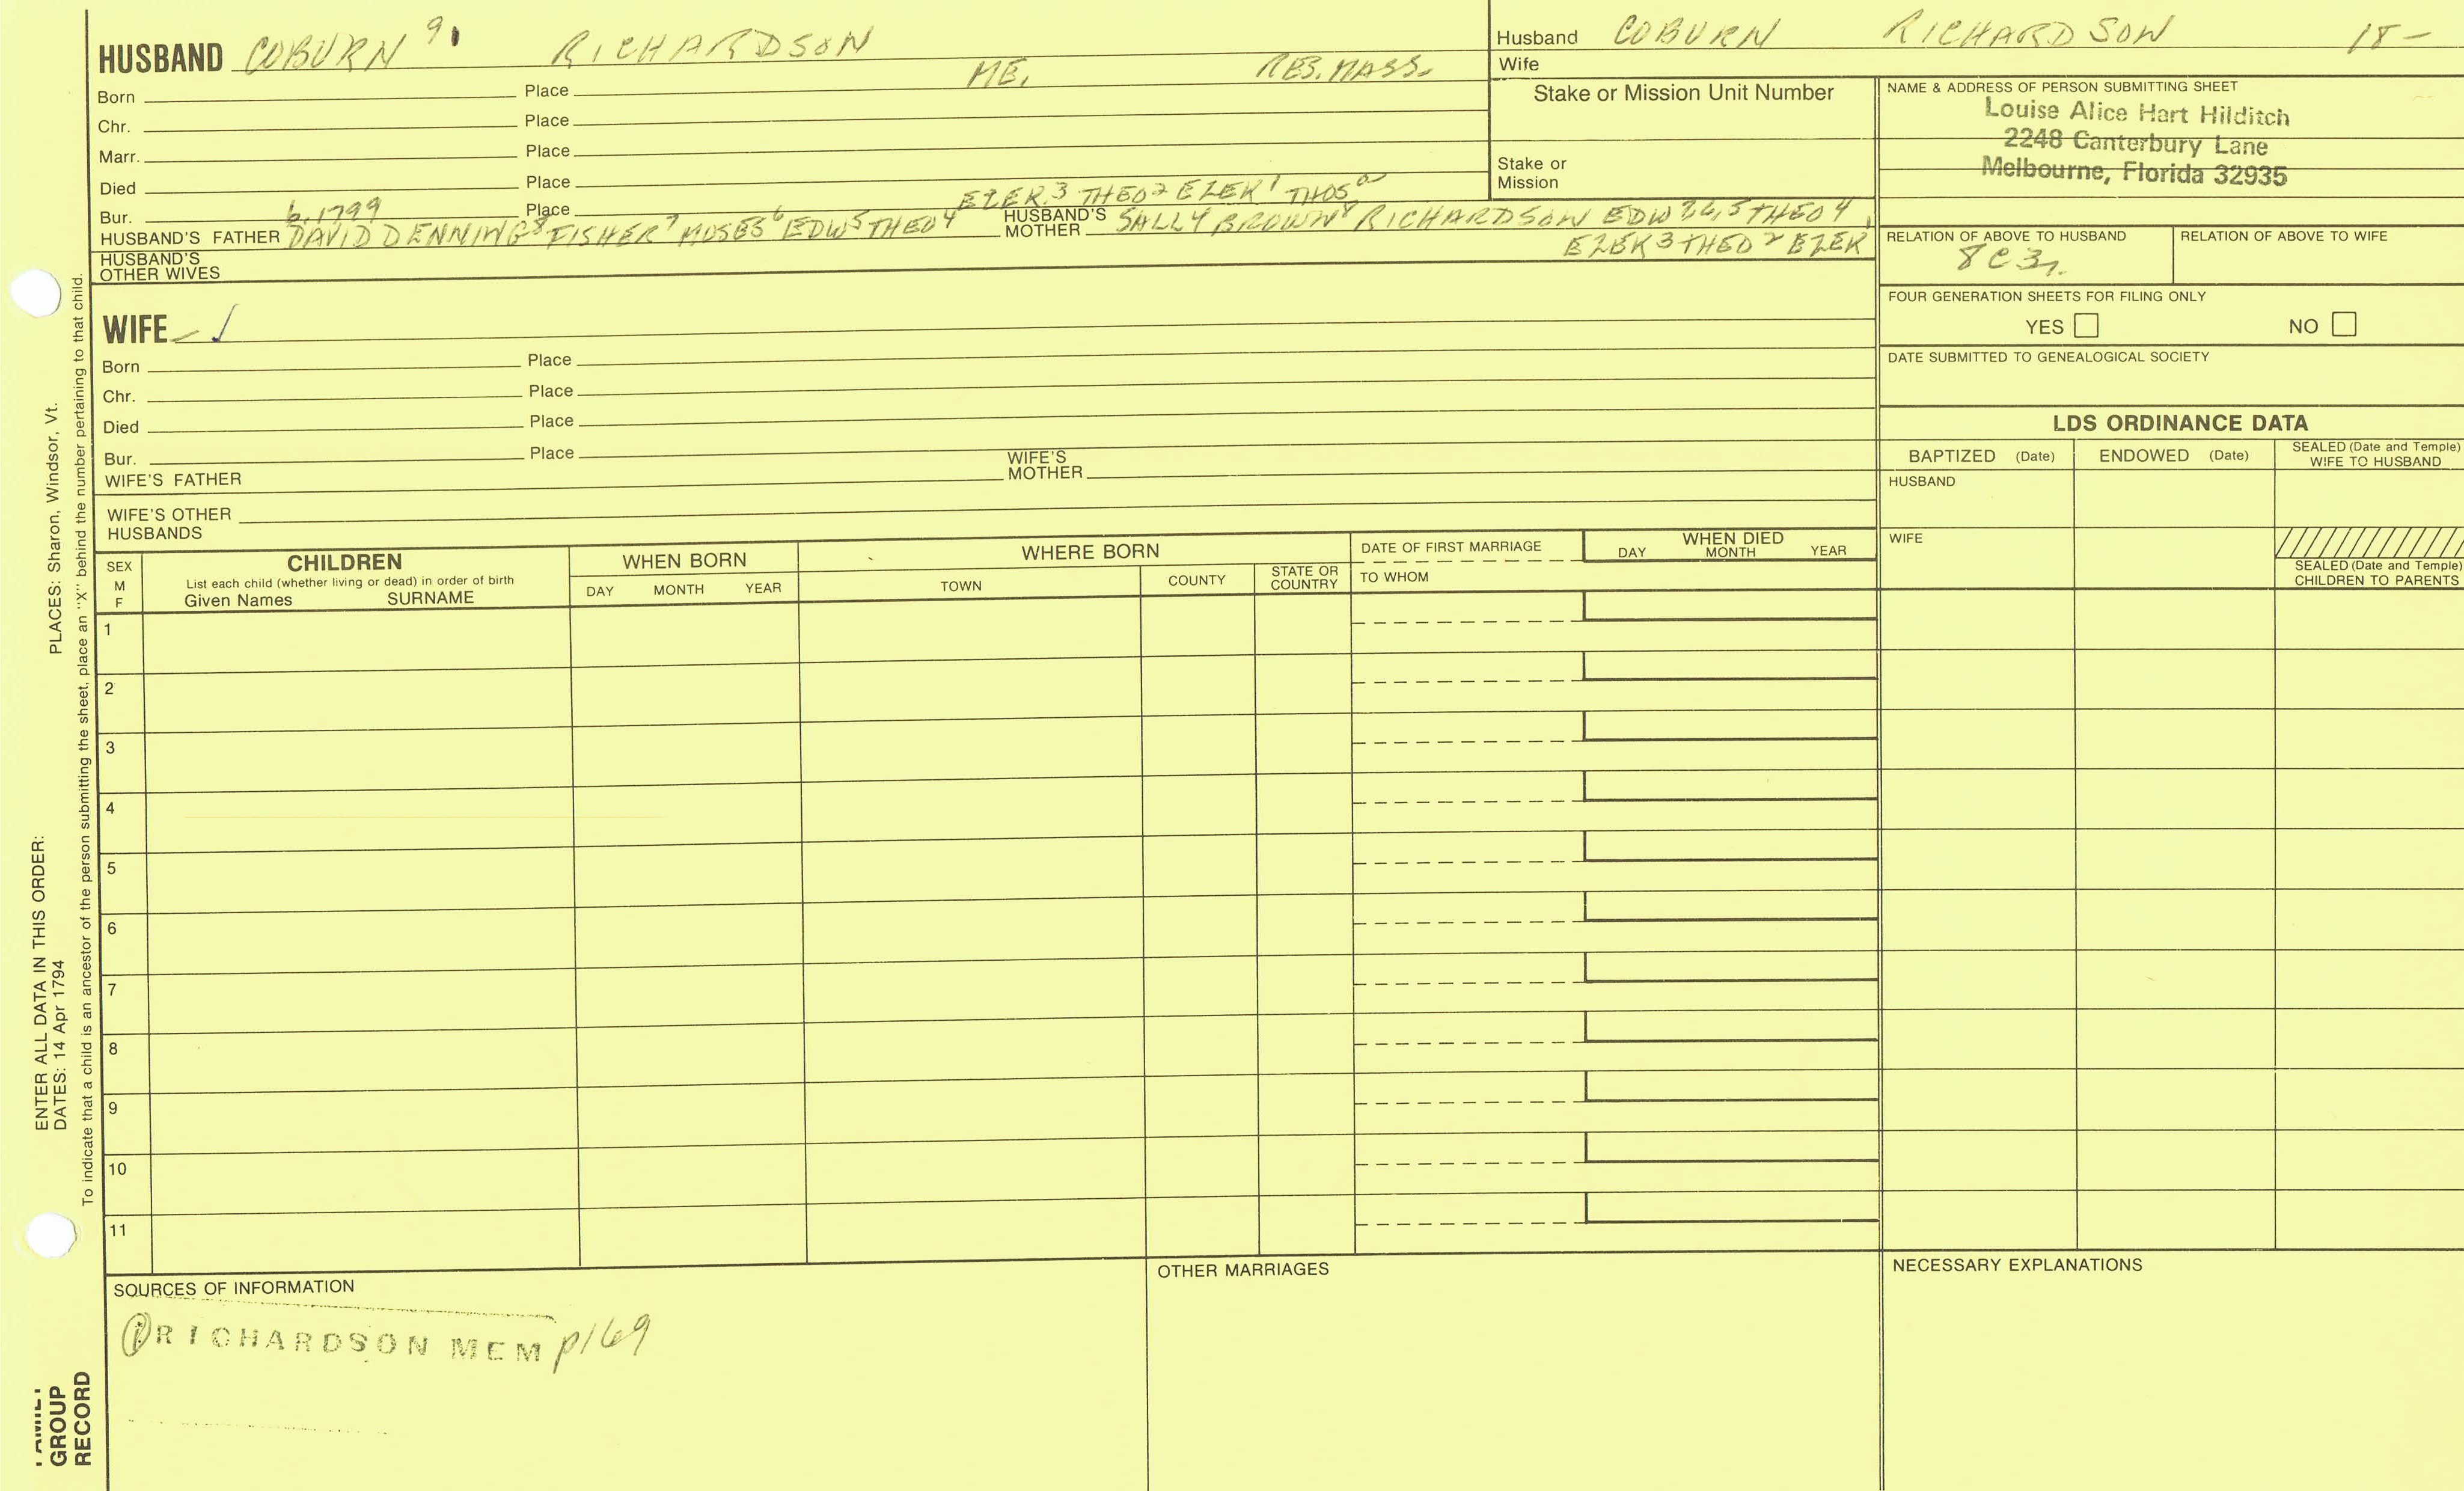 HUSBAND COBURN 9 RICHARDSON
ME. RES. MASS.
Born Place
Chr. Place
Marr. Place
Died Place
EZEK.3 THEO2 EZEK1 THOSa
Bur. b.1799 Place
HUSBAND'S FATHER DAVID DENNING8 FISHER7 MOSES6 EDW5 THEO4 HUSBAND'S MOTHER SALLY BROWN8 RICHARDSON EDW 7,6,5 THEO4
EZEK3 THEO2 EZEK1
HUSBAND'S OTHER WIVES
WIFE
Born Place
Chr. Place
Died Place
Bur. Place
WIFE'S FATHER WIFE'S MOTHER
WIFE'S OTHER HUSBANDS
Husband COBURN RICHARDSON 18-
Wife
Stake or Mission Unit Number
Stake or Mission
NAME & ADDRESS OF PERSON SUBMITTING SHEET
Louise Alice Hart Hilditch
2248 Canterbury Lane
Melbourne, Florida 32935
RELATION OF ABOVE TO HUSBAND RELATION OF ABOVE TO WIFE
8C3r.
FOUR GENERATION SHEETS FOR FILING ONLY
YES NO
DATE SUBMITTED TO GENEALOGICAL SOCIETY
LDS ORDINANCE DATA
BAPTIZED (Date) ENDOWED (Date) SEALED (Date and Temple) WIFE TO HUSBAND
HUSBAND
WIFE
SEALED (Date and Temple) CHILDREN TO PARENTS
SEX M F
CHILDREN
List each child (whether living or dead) in order of birth
Given Names SURNAME
WHEN BORN
DAY MONTH YEAR
WHERE BORN
TOWN COUNTY STATE OR COUNTRY
DATE OF FIRST MARRIAGE
TO WHOM
WHEN DIED
DAY MONTH YEAR
1
2
3
4
5
6
7
8
9
10
11
SOURCES OF INFORMATION
① RICHARDSON MEM p169
OTHER MARRIAGES
NECESSARY EXPLANATIONS
ENTER ALL DATA IN THIS ORDER:
DATES: 14 Apr 1794
PLACES: Sharon, Windsor, Vt.
To indicate that a child is an ancestor of the person submitting the sheet, place an "X" behind the number pertaining to that child.
FAMILY
GROUP
RECORD